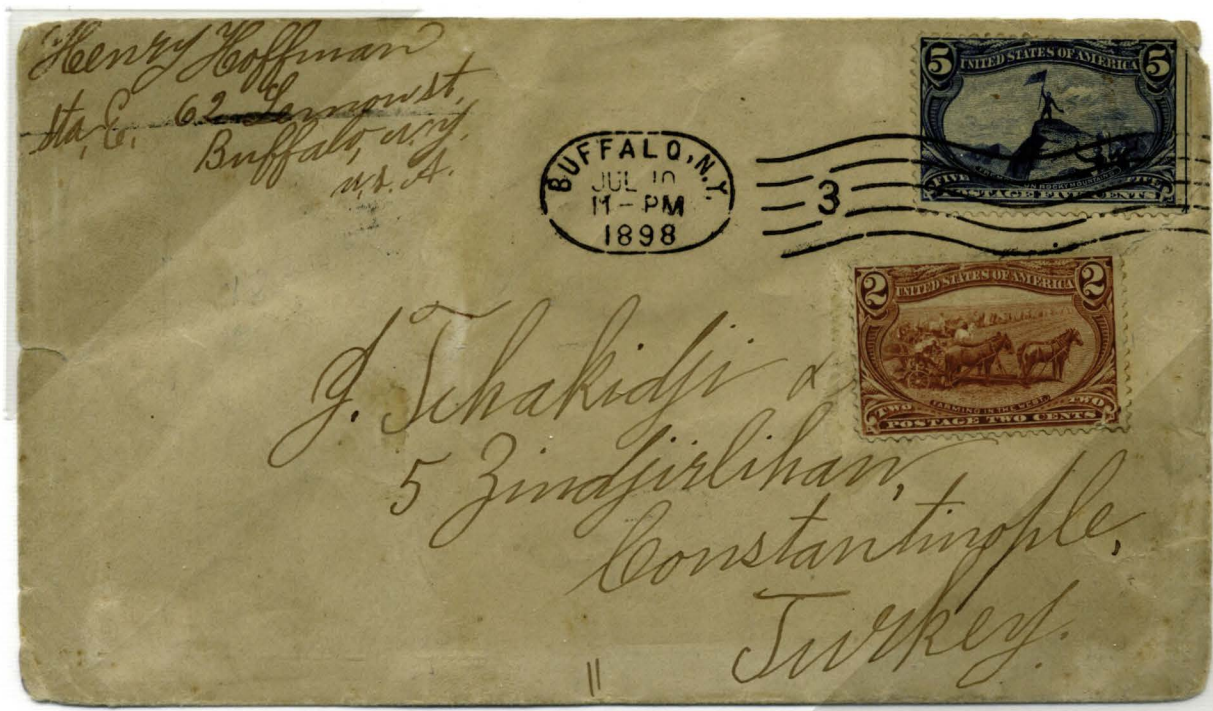 Henry Hoffman
Sta. E. 62 Lemon st.
Buffalo, N.Y.
U.S.A.
BUFFALO, N.Y.
JUL 10
11-PM
1898
3
5 UNITED STATES OF AMERICA 5
FIVE
POSTAGE FIVE CENTS
2 UNITED STATES OF AMERICA 2
FARMING IN THE WEST.
TWO TWO
POSTAGE TWO CENTS
J. Tchakidji &
5 Zindjirlihan,
Constantinople,
Turkey.
11